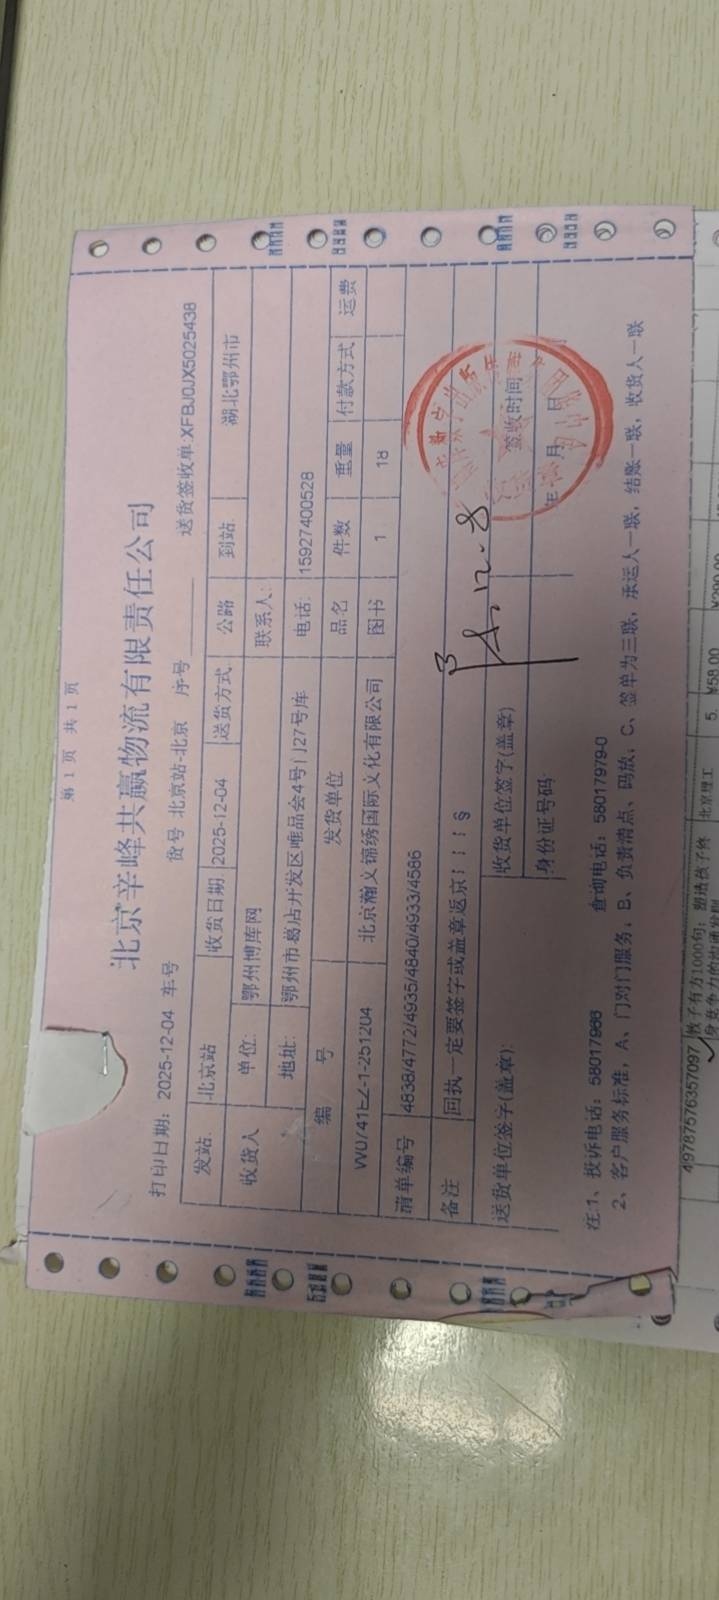 第 1 页 共 1 页
北京辛峰共赢物流有限责任公司
打印日期: 2025-12-04 车号 货号 北京站-北京 序号 送货签收单:XFBJ0JX5025438
发站 北京站 收货日期 2025-12-04 送货方式 公路 到站 湖北鄂州市
收货人 单位: 鄂州博库网 联系人:
地址: 鄂州市葛店开发区唯品会4号门27号库 电话: 15927400528
编 号 发货单位 品名 件数 重量 付款方式 运费
北京瀚文锦绣国际文化有限公司 图书 1 18
清单编号 4838/4772/4935/4840/4933/4586
备注 回执一定要签字或盖章返京!!!§
12.8
送货单位签字(盖章): 收货单位签字(盖章) 签收时间
身份证号码: 年 月 日
注:1、投诉电话: 58017966 查询电话: 58017979-0
2、客户服务标准, A、门对门服务, B、负责清点、码放, C、签单为三联, 承运人一联, 结账一联, 收货人一联
49787576357097 教子有方1000句: 塑造孩子终 北京理工 5. ¥58.00